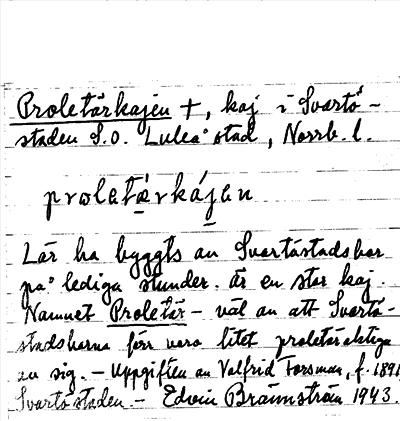 Proletärkajen +, kaj i Svartö-
staden S.O. Luleå stad, Norrb. l.
proletä̱rkáje̱n
Lär ha byggts av Svartöstadsbor
på lediga stunder. Är en stor kaj.
Namnet Proletär - väl av att Svartö-
stadsborna förr voro litet proletäraktiga
av sig. - Uppgiften av Valfrid Forsman, f. 1891
Svartöstaden. - Edvin Brännström 1943.